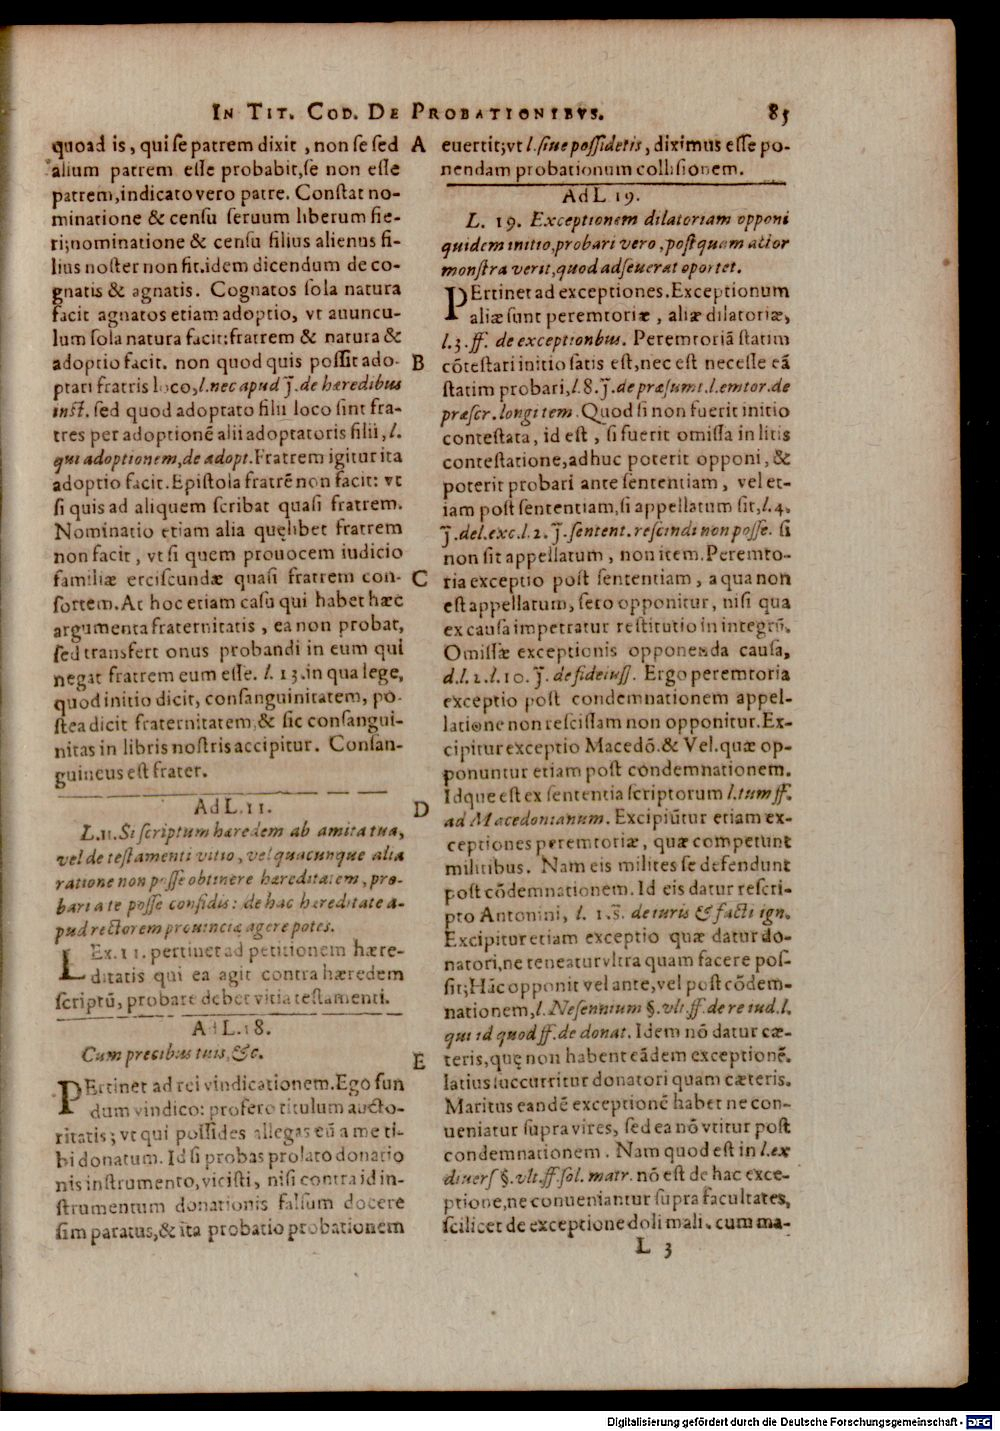 IN TIT. COD. DE PROBATIONIBVS. 85
quoad is, qui se patrem dixit, non se sed A
alium patrem esse probabit, se non esse
patrem, indicato vero patre. Constat no-
minatione & censu seruum liberum fie-
ri; nominatione & censu filius alienus fi-
lius noster non fit. idem dicendum de co-
gnatis & agnatis. Cognatos sola natura
facit agnatos etiam adoptio, vt auuncu-
lum sola natura facit: fratrem & natura &
adoptio facit. non quod quis possit ado- B
ptari fratris loco, l. nec apud ʃ. de hæredibus
inst. sed quod adoptato filii loco sint fra-
tres per adoptionē alii adoptatoris filii, l.
qui adoptionem, de adopt. Fratrem igitur ita
adoptio facit. Epistola fratrē non facit: vt
si quis ad aliquem scribat quasi fratrem.
Nominatio etiam alia quęlibet fratrem
non facit, vt si quem prouocem iudicio
familiæ erciscundæ quasi fratrem con- C
sortem. At hoc etiam casu qui habet hæc
argumenta fraternitatis, ea non probat,
sed transfert onus probandi in eum qui
negat fratrem eum esse. l. 13. in qua lege,
quod initio dicit, consanguinitatem, po-
stea dicit fraternitatem, & sic consangui-
nitas in libris nostris accipitur. Consan-
guineus est frater.
Ad L. 11. D
L. 11. Si scriptum hæredem ab amita tua,
vel de testamenti vitio, vel quacunque alia
ratione non posse obtinere hæreditatem, pro-
bari a te posse confidis: de hac hæreditate a-
pud rectorem prouinciæ agere potes.
LEx. 11. pertinet ad petitionem hære-
ditatis qui ea agit contra hæredem
scriptū, probare debet vitia testamenti.
Ad L. 18.
Cum precibus tuis, &c. E
PErtinet ad rei vindicationem. Ego fun
dum vindico: profero titulum aucto-
ritatis; vt qui possides allegas eū a me ti-
bi donatum. Id si probas prolato donatio
nis instrumento, vicisti, nisi contra id in-
strumentum donationis falsum docere
sim paratus, & ita probatio probationem
euertit; vt l. siue possidetis, diximus esse po-
nendam probationum collisionem.
Ad L 19.
L. 19. Exceptionem dilatoriam opponi
quidem initio, probari vero, postquam actor
monstra verit, quod adseuerat oportet.
PErtinet ad exceptiones. Exceptionum
aliæ sunt peremtoriæ, aliæ dilatoriæ,
l. 3. ff. de exceptionbus. Peremtoriā statim
cōtestari initio satis est, nec est necesse eā
statim probari, l. 8. ʃ. de præsumt. l. emtor. de
præscr. longi tem. Quod si non fuerit initio
contestata, id est, si fuerit omissa in litis
contestatione, adhuc poterit opponi, &
poterit probari ante sententiam, vel et-
iam post sententiam, si appellatum sit, l. 4.
ʃ. del. exc. l. 2. ʃ. sentent. rescindi non posse. si
non sit appellatum, non item. Peremto-
ria exceptio post sententiam, a qua non
est appellatum, sero opponitur, nisi qua
ex causa impetratur restitutio in integrū.
Omissæ exceptionis opponenda causa,
d. l. 2. l. 10. ʃ. de fideiuss. Ergo peremtoria
exceptio post condemnationem appel-
latione non rescissam non opponitur. Ex-
cipitur exceptio Macedō. & Vel. quæ op-
ponuntur etiam post condemnationem.
Idque est ex sententia scriptorum l. tum ff.
ad Macedonianum. Excipiūtur etiam ex-
ceptiones peremtoriæ, quæ competunt
militibus. Nam eis milites se defendunt
post cōdemnationem. Id eis datur rescri-
pto Antonini, l. 1. ʃ. de iuris & facti ign.
Excipitur etiam exceptio quæ datur do-
natori, ne teneatur vltra quam facere pos-
sit; Hāc opponit vel ante, vel post cōdem-
nationem, l. Nesennium §. vlt. ff. de re iud. l.
qui id quod ff. de donat. Idem nō datur cæ-
teris, quę non habent eādem exceptionē.
latius succurritur donatori quam cæteris.
Maritus eandē exceptionē habet ne con-
ueniatur supra vires, sed ea nō vtitur post
condemnationem. Nam quod est in l. ex
diuers §. vlt. ff. sol. matr. nō est de hac exce-
ptione, ne conueniantur supra facultates,
scilicet de exceptione doli mali. cum ma-
L 3
Digitalisierung gefördert durch die Deutsche Forschungsgemeinschaft - DFG